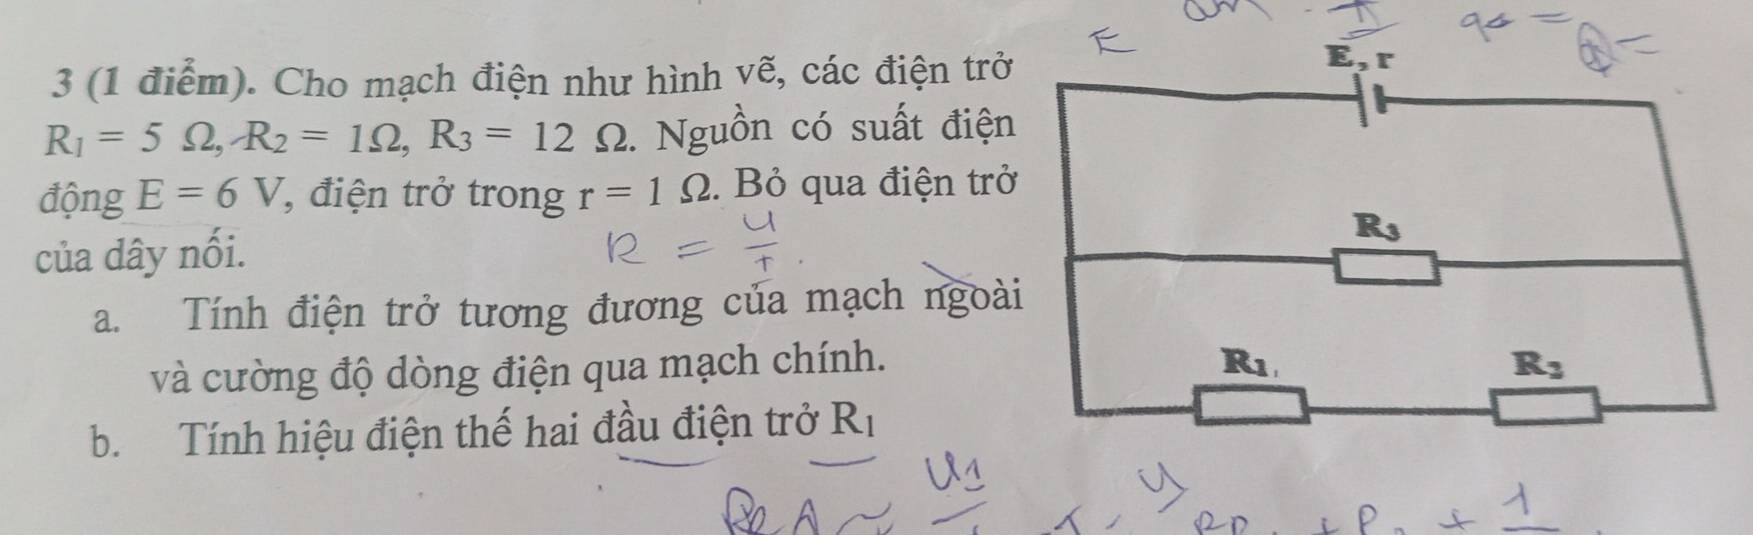 E
E, r
3 (1 điểm). Cho mạch điện như hình vẽ, các điện trở
R₁ = 5 Ω, R₂ = 1Ω, R₃ = 12 Ω. Nguồn có suất điện
động E = 6 V, điện trở trong r = 1 Ω. Bỏ qua điện trở
của dây nối.
R =
a. Tính điện trở tương đương của mạch ngoài
và cường độ dòng điện qua mạch chính.
b. Tính hiệu điện thế hai đầu điện trở R₁
R₃
R₁
R₂
U₁